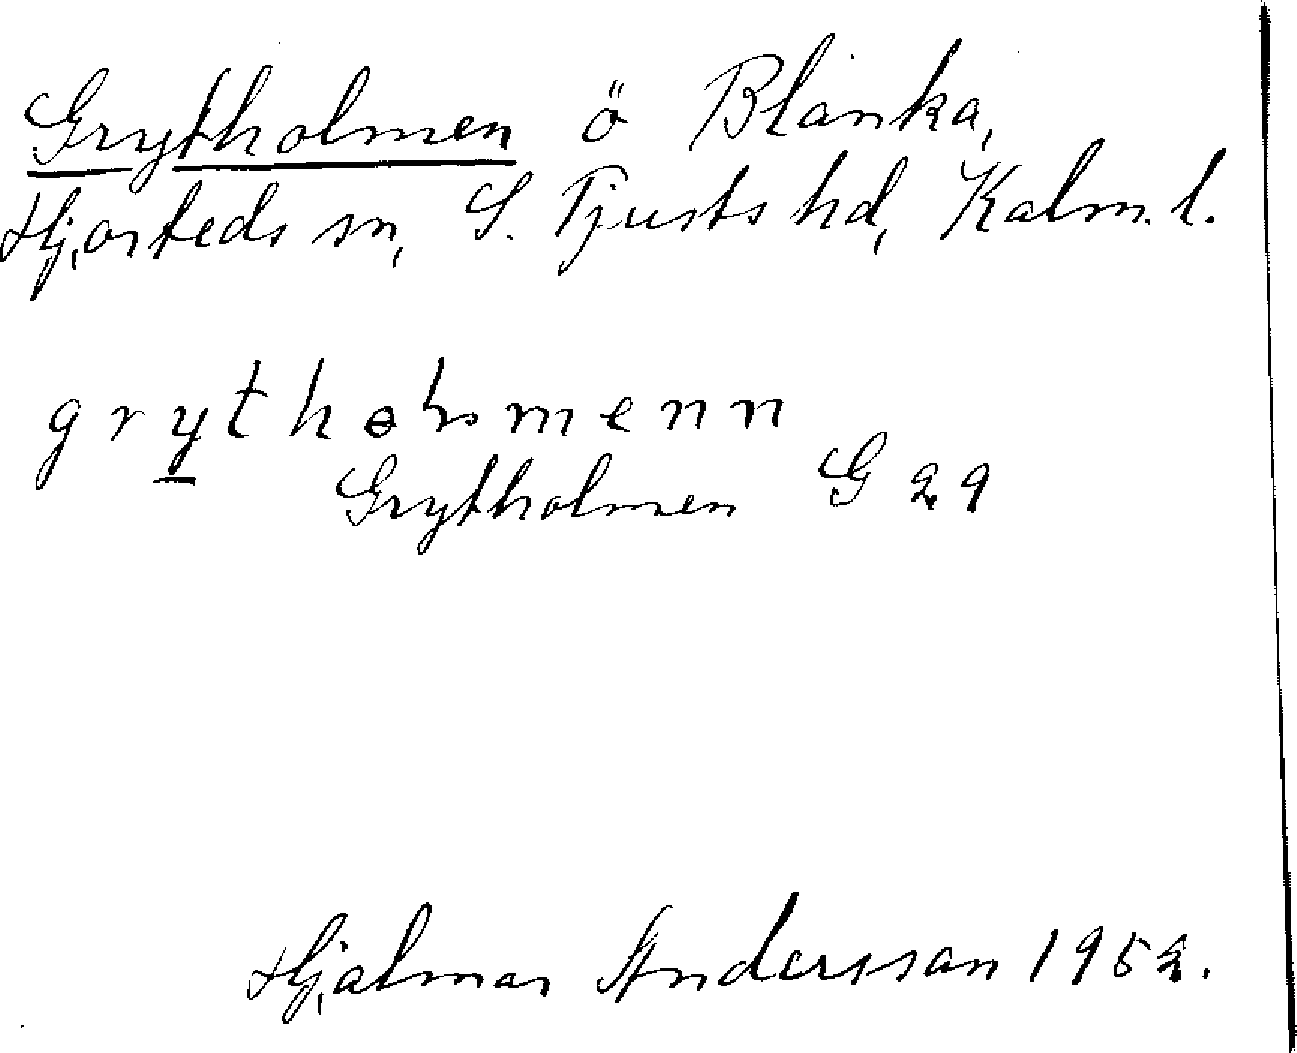 Grytholmen ö Blanka,
Hjorteds sn, S. Tjusts hd, Kalm. l.
grytholmenn
Grytholmen G 29
Hjalmar Andersson 1952.